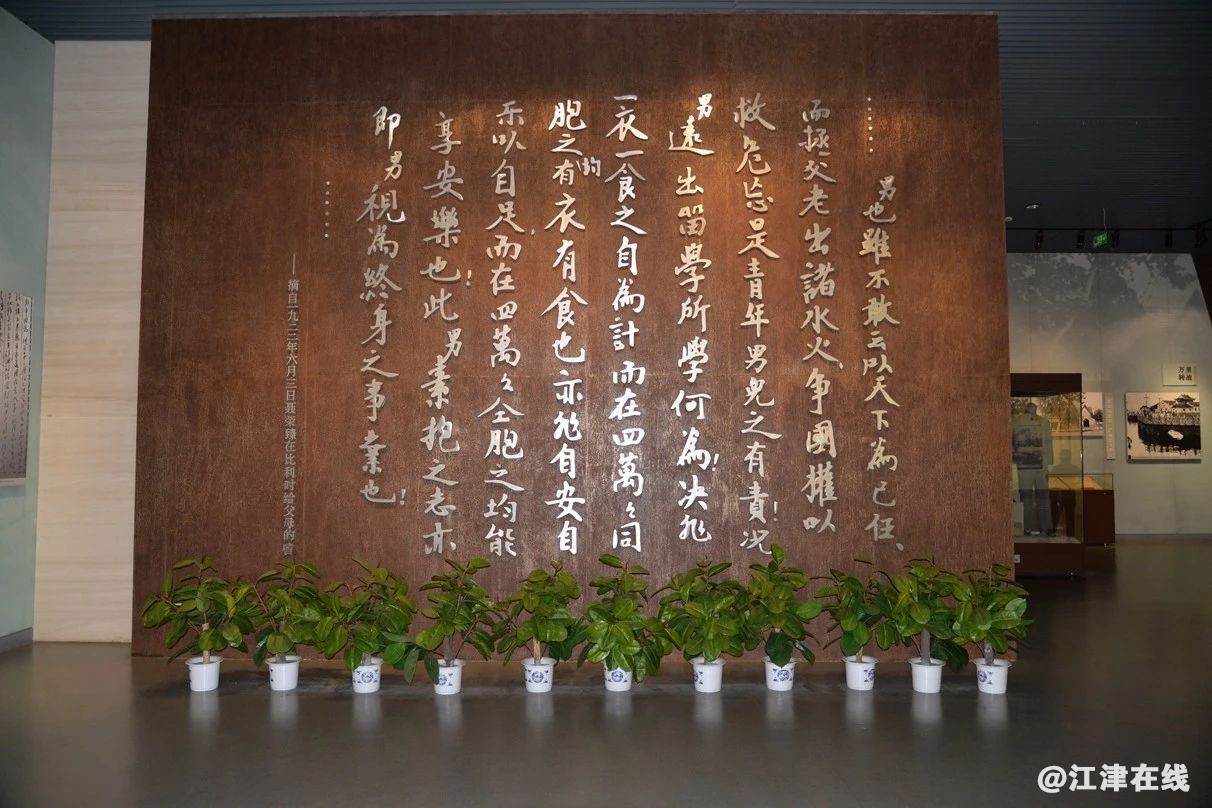 ……男也雖不敢云以天下為己任、
而拯父老出諸水火爭國權以
救危是青年男兒之有責!况
男遠出留學所學何為!决非
一衣一食之自為計而在四萬々同
胞之均有衣有食也亦非自安自
乐以自足,而在四萬々仝胞之均能
享安樂也!此男素抱之志亦
即男視為終身之事業也!
……
——摘自一九二二年六月三日聂荣臻在比利时给父母的信
万里
转战
@江津在线